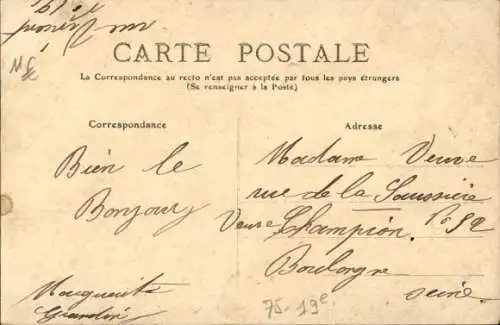 CARTE POSTALE
La Correspondance au recto n'est pas acceptée par tous les pays étrangers
(Se renseigner à la Poste)
Correspondance
Adresse
Bien le
Bonjour
Marguerite
Madame Veuve
rue de la Saussière
Veuve Champion. No 52
Boulongne
seine.
75-19e